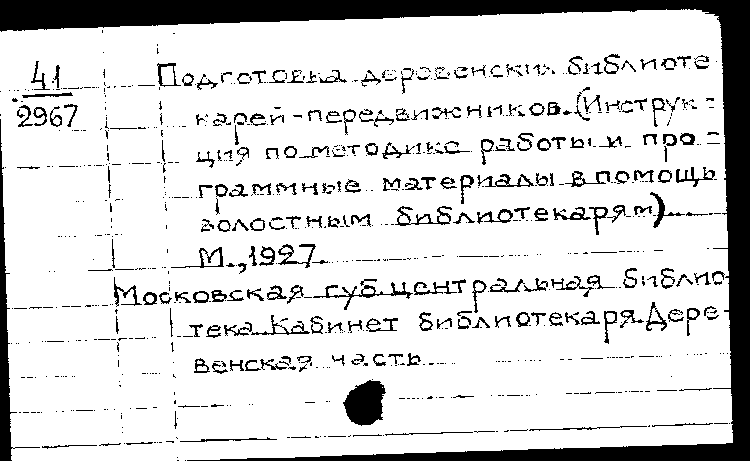 41
2967
Подготовка деревенских библиоте
карей-передвижников. (Инструк=
ция по методике работы и про=
граммные материалы в помощь
волостным библиотекарям)...
М., 1927.
Московская губ. центральная библио
тека. Кабинет библиотекаря. Дере-
венская часть